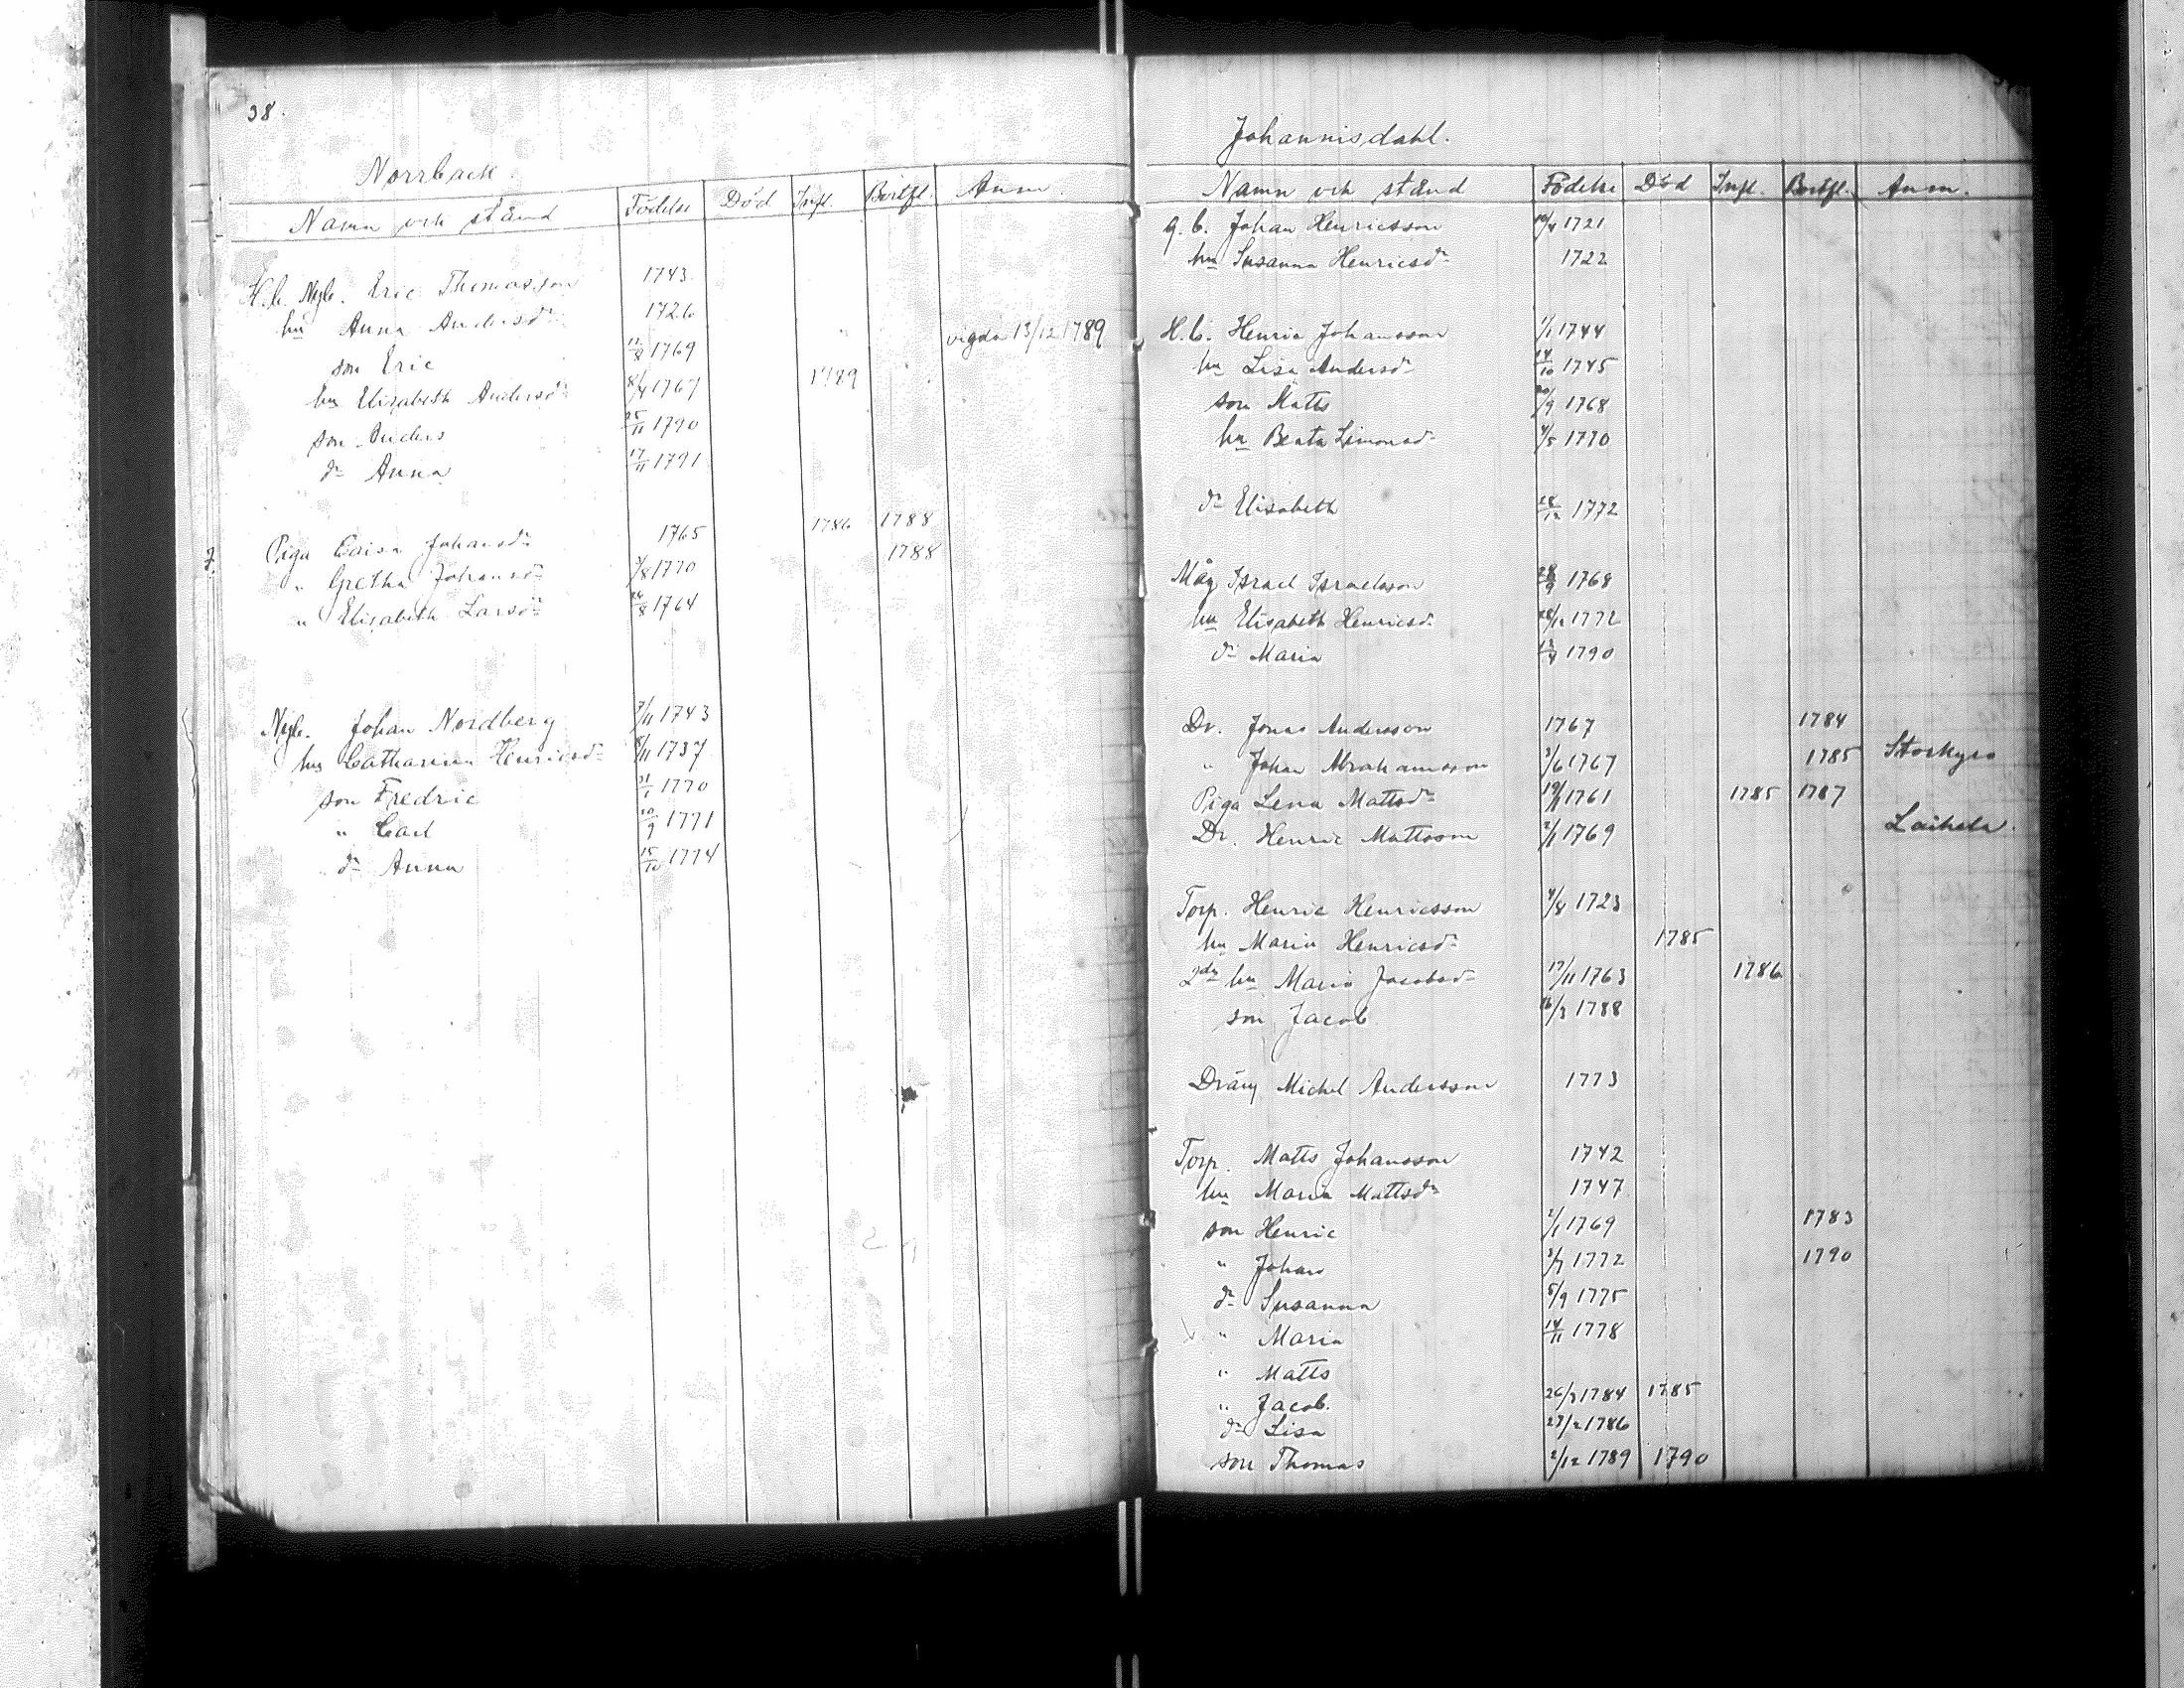 38.
Norrback.
Namn och stånd Födelse Död Infl. Bortfl. Anm.
H.b. Nyb. Eric Thomasson 1743
hu Anna Andersdr 1726
son Eric 11/8 1769 vigda 13/12 1789
hu Elisabeth Andersdr 8/4 1767 1789
son Anders 25/11 1790
dr Anna 17/11 1791
Piga Caisa Johansdr 1765 1786 1788
" Gretha Johansdr /8 1770 1788
" Elisabeth Larsdr 26/8 1764
Nyb. Johan Nordberg 7/11 1743
hu Catharina Henricsdr 8/11 1737
son Fredric 31/1 1770
" Carl 20/9 1771
dr Anna 15/10 1774
Johannisdahl.
Namn och stånd Födelse Död Infl. Bortfl. Anm.
g. b. Johan Henricsson 1721
hu Susanna Henricsdr 1722
H.b. Henric Johansson 1/1 1744
hu Lisa Andersdr 14/10 1745
son Matts 20/9 1768
hu Beata Simonsdr 4/5 1770
dr Elisabeth 28/12 1772
Måg Israel Israelsson 28/9 1768
hu Elisabeth Henricsdr 28/12 1772
dr Maria 1790
Dr. Jonas Andersson 1767 1784
" Johan Abrahamsson 3/6 1767 1785 Storkyro
Piga Lena Mattsdr 1761 1785 1787
Dr. Henric Mattsson 2/1 1769 Laihela.
Torp. Henric Henricsson 4/8 1723
hu Maria Henricsdr 1785
2dra hu Maria Jacobsdr 17/11 1763 1786
son Jacob 16/3 1788
Dräng Michel Andersson 1773
Torp. Matts Johansson 1742
hu Maria Mattsdr 1747
son Henric 2/1 1769 1783
" Johan 3/7 1772 1790
dr Susanna 5/9 1775
" Maria 14/11 1778
" Matts
" Jacob. 26/3 1784 1785
dr Lisa 27/2 1786
son Thomas 2/12 1789 1790